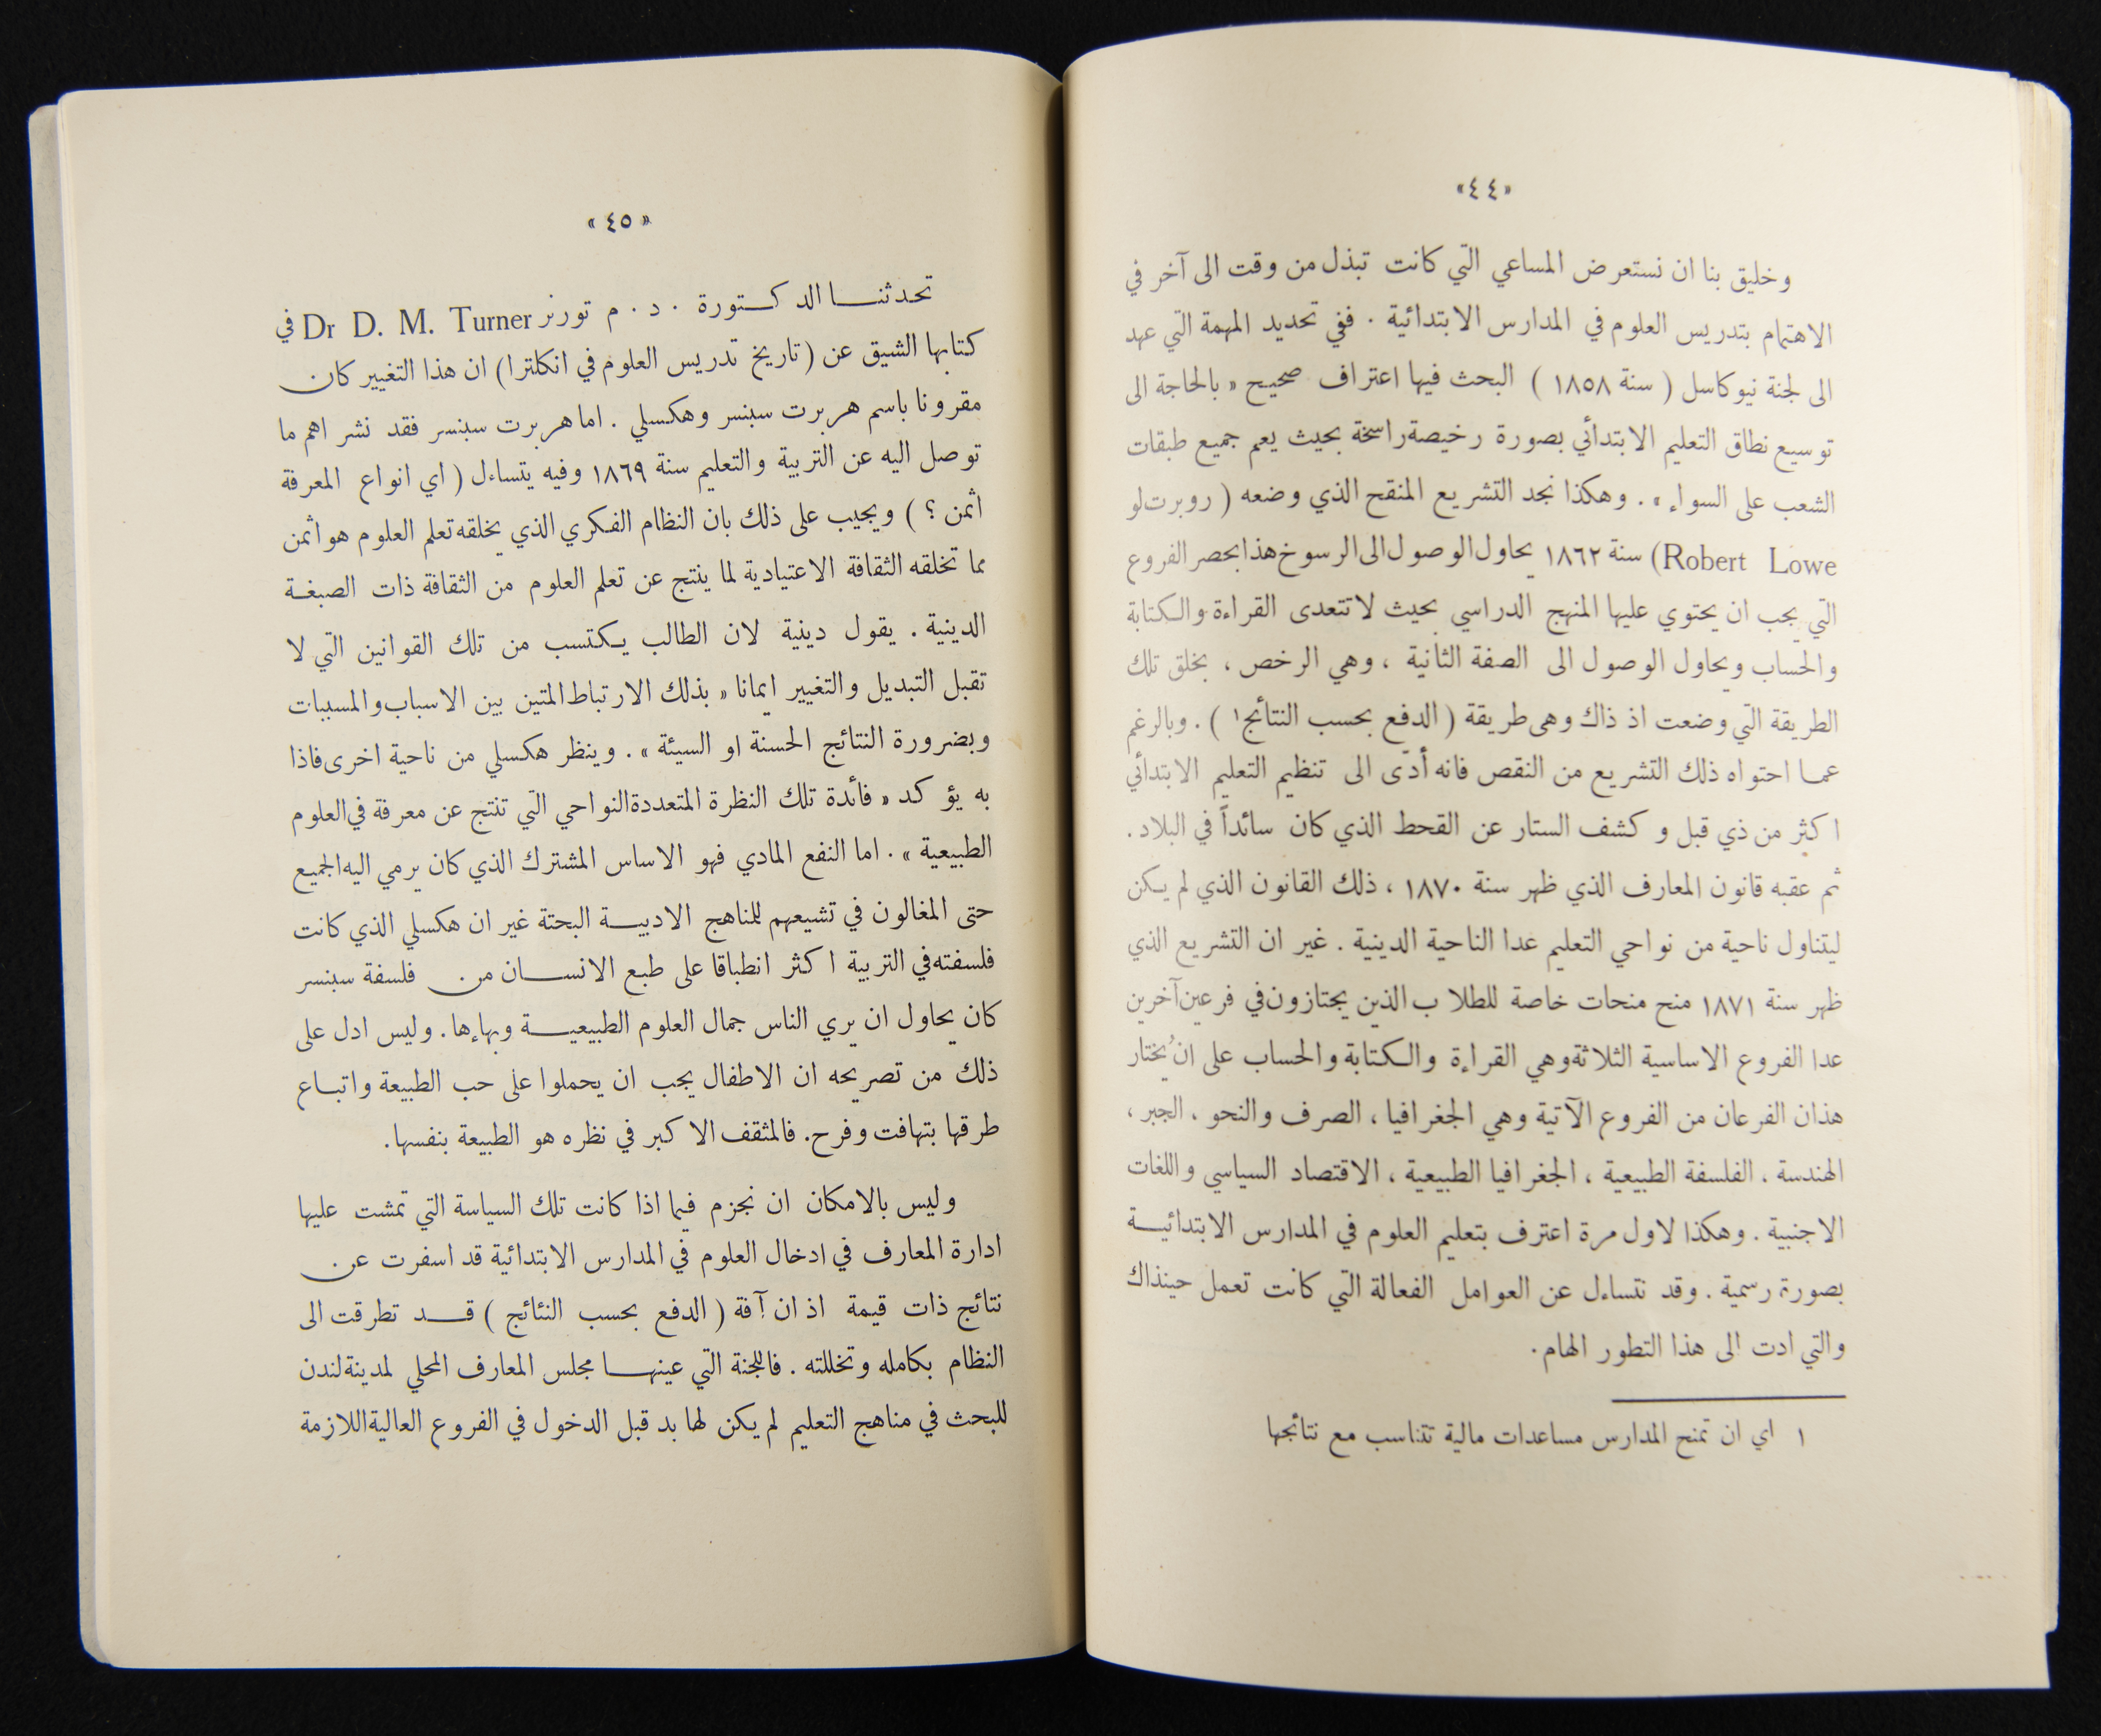 «٤٤»
وخليق بنا ان نستعرض المساعي التي كانت تبذل من وقت الى آخر في
الاهتمام بتدريس العلوم في المدارس الابتدائية . ففي تحديد المهمة التي عهد
الى لجنة نيوكاسل ( سنة ١٨٥٨ ) البحث فيها اعتراف صحيح « بالحاجة الى
توسيع نطاق التعليم الابتدائي بصورة رخيصة راسخة بحيث يعم جميع طبقات
الشعب على السواء » . وهكذا نجد التشريع المنقح الذي وضعه ( روبرت لو
Robert Lowe) سنة ١٨٦٢ يحاول الوصول الى الرسوخ هذا بحصر الفروع
التي يجب ان يحتوي عليها المنهج الدراسي بحيث لا تتعدى القراءة والكتابة
والحساب ويحاول الوصول الى الصفة الثانية ، وهي الرخص ، بخلق تلك
الطريقة التي وضعت اذ ذاك وهى طريقة ( الدفع بحسب النتائج١ ) . وبالرغم
عما احتواه ذلك التشريع من النقص فانه أدّى الى تنظيم التعليم الابتدائي
اكثر من ذي قبل وكشف الستار عن القحط الذي كان سائداً في البلاد .
ثم عقبه قانون المعارف الذي ظهر سنة ١٨٧٠ ، ذلك القانون الذي لم يكن
ليتناول ناحية من نواحي التعليم عدا الناحية الدينية . غير ان التشريع الذي
ظهر سنة ١٨٧١ منح منحات خاصة للطلاب الذين يجتازون في فرعين آخرين
عدا الفروع الاساسية الثلاثة وهي القراءة والكتابة والحساب على ان يُختار
هذان الفرعان من الفروع الآتية وهي الجغرافيا ، الصرف والنحو ، الجبر ،
الهندسة ، الفلسفة الطبيعية ، الجغرافيا الطبيعية ، الاقتصاد السياسي واللغات
الاجنبية . وهكذا لاول مرة اعترف بتعليم العلوم في المدارس الابتدائيــة
بصورة رسمية . وقد نتساءل عن العوامل الفعالة التي كانت تعمل حينذاك
والتي ادت الى هذا التطور الهام .
١ اي ان تمنح المدارس مساعدات مالية تتناسب مع نتائجها
« ٤٥ »
تحدثنــا الدكـتورة . د . م تورنر Dr D. M. Turner في
كتابها الشيق عن ( تاريخ تدريس العلوم في انكلترا ) ان هذا التغيير كان
مقرونا باسم هربرت سبنسر وهكسلي . اما هربرت سبنسر فقد نشر اهم ما
توصل اليه عن التربية والتعليم سنة ١٨٦٩ وفيه يتساءل ( اي انواع المعرفة
اثمن ؟ ) ويجيب على ذلك بان النظام الفكري الذي يخلقه تعلم العلوم هو اثمن
مما تخلقه الثقافة الاعتيادية لما ينتج عن تعلم العلوم من الثقافة ذات الصبغـة
الدينية . يقول دينية لان الطالب يكتسب من تلك القوانين التي لا
تقبل التبديل والتغيير ايمانا « بذلك الارتباط المتين بين الاسباب والمسببات
وبضرورة النتائج الحسنة او السيئة » . وينظر هكسلي من ناحية اخرى فاذا
به يؤكد « فائدة تلك النظرة المتعددة النواحي التي تنتج عن معرفة في العلوم
الطبيعية » . اما النفع المادي فهو الاساس المشترك الذي كان يرمي اليه الجميع
حتى المغالون في تشيعهم للمناهج الادبيــة البحتة غير ان هكسلي الذي كانت
فلسفته في التربية اكثر انطباقا على طبع الانســان من فلسفة سبنسر
كان يحاول ان يري الناس جمال العلوم الطبيعيــة وبهاءها . وليس ادل على
ذلك من تصريحه ان الاطفال يجب ان يحملوا على حب الطبيعة واتبــاع
طرقها بتهافت وفرح . فالمثقف الاكبر في نظره هو الطبيعة بنفسها .
وليس بالامكان ان نجزم فيما اذا كانت تلك السياسة التي تمشت عليها
ادارة المعارف في ادخال العلوم في المدارس الابتدائية قد اسفرت عن
نتائج ذات قيمة اذ ان آفة ( الدفع بحسب النتائج ) قــد تطرقت الى
النظام بكامله وتخللته . فاللجنة التي عينهــا مجلس المعارف المحلي لمدينة لندن
للبحث في مناهج التعليم لم يكن لها بد قبل الدخول في الفروع العالية اللازمة